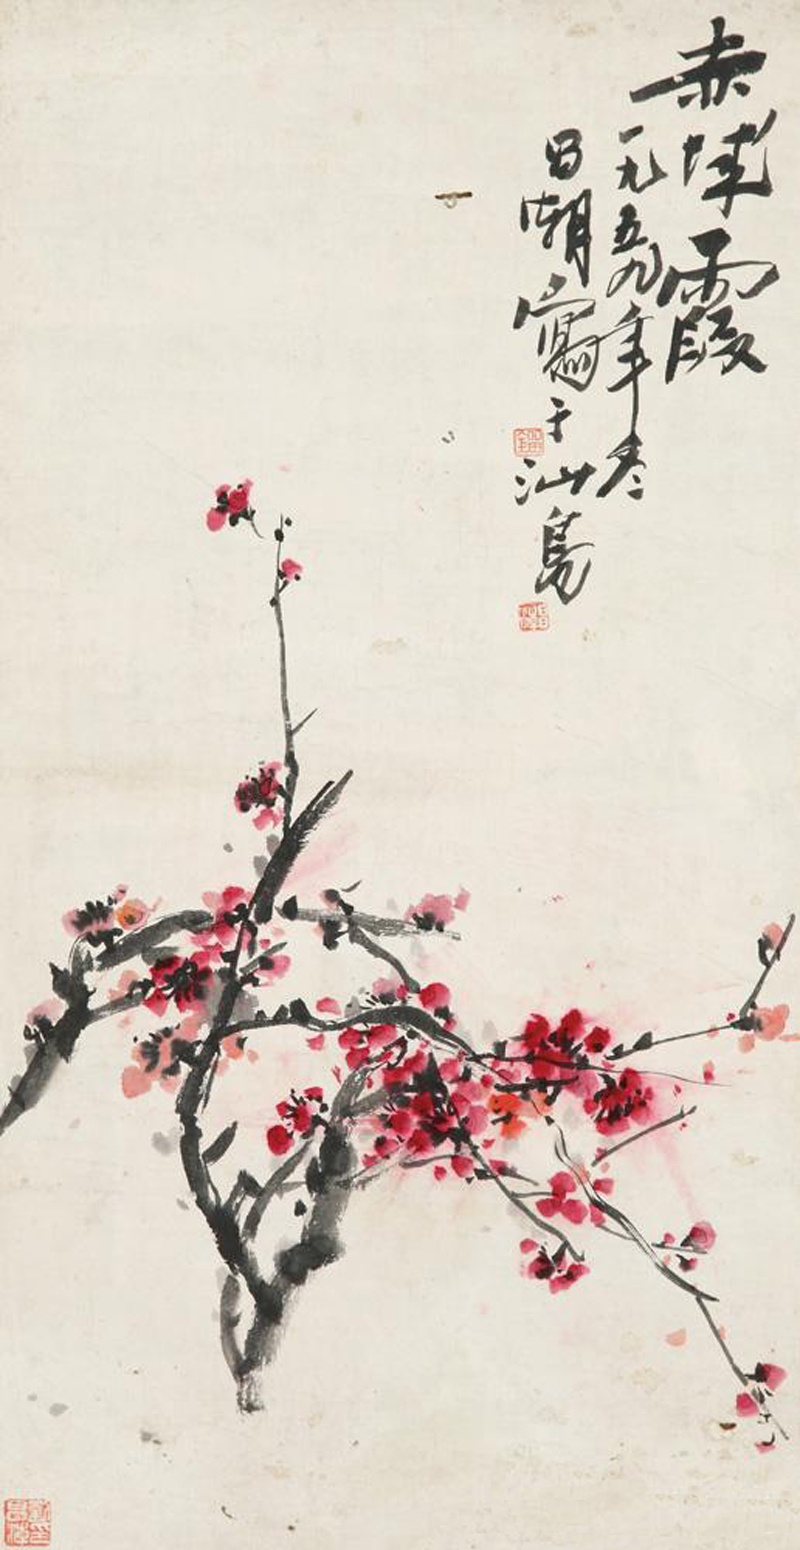 赤城霞
一九五九年冬
昌潮寫于汕島